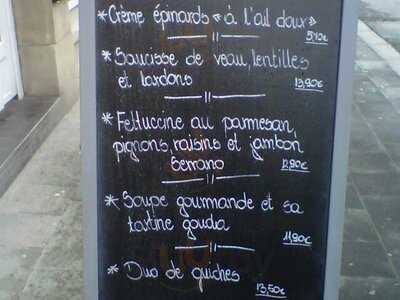 *Crème épinards «à l'ail doux»
5,90€
* Saucisse de veau, lentilles
et lardons 13,90€
* Fettuccine au parmesan,
pignons, raisins et jambon
Serrano 12,90€
* Soupe gourmande et sa
tartine gouda
11,90€
* Duo de quiches
13,50€